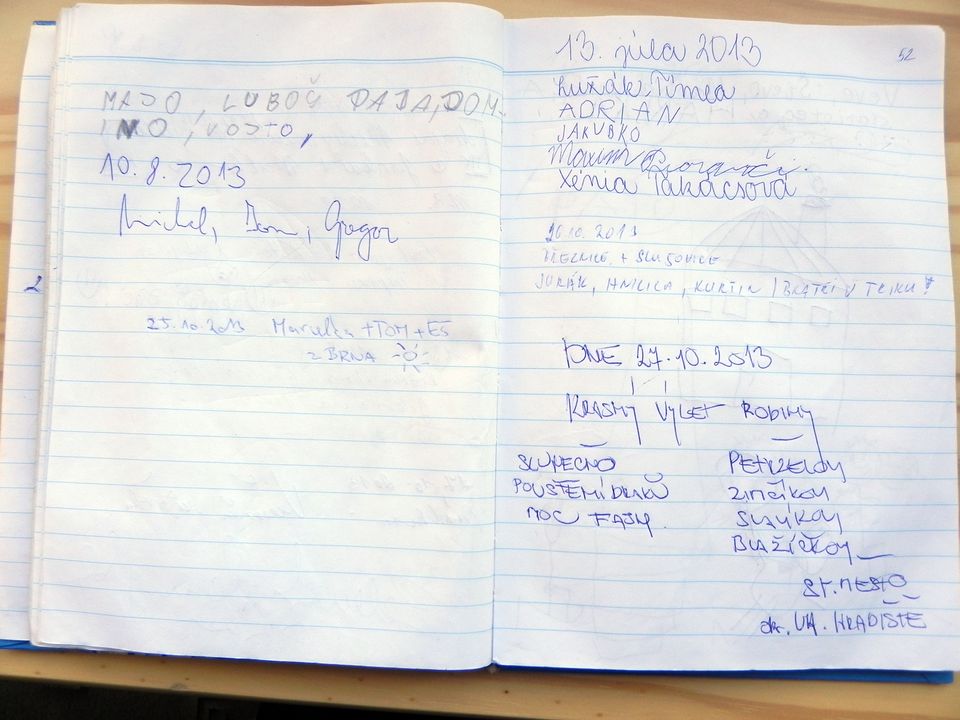 MAJO, LUBOŠ DADA, DOM-
INO, VOJTO,
10.8.2013
Michal, Dom, Gregor
25.10.2013 Marulka + TOM + EŠ
z BRNA
2
13. júla 2013
52
Lužák Timea
ADRIAN
JAKUBKO
Maxim
Xénia Takácsová
26.10.2013
BŘEZNICE + SLUŠOVICE
JURÁK, HNILICA, KURTIN / BRATŘI V TRIKU!
DNE 27.10.2013
KRASNÝ VÝLET RODINY
SLUNEČNO
POUŠTĚNÍ DRAKŮ
MOC FAJN.
PETRŽELOVY
ZIMČÍKOVY
SLAVÍKOVY
BLAŽÍČKOVY
ST. MĚSTO
okr. UH. HRADIŠTĚ